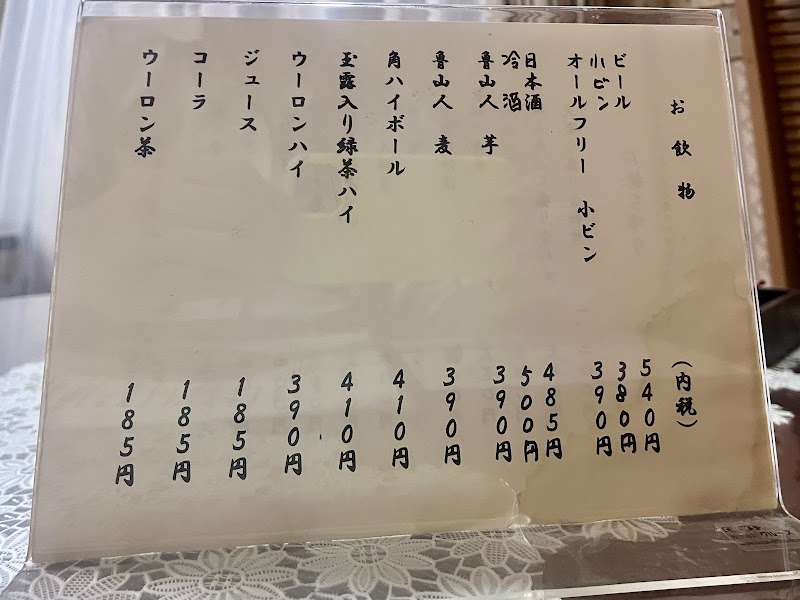 お飲物 (内税)
ビール 540円
小ビン 380円
オールフリー 小ビン 390円
日本酒 485円
冷酒 500円
魯山人 芋 390円
魯山人 麦 390円
角ハイボール 410円
玉露入り緑茶ハイ 410円
ウーロンハイ 390円
ジュース 185円
コーラ 185円
ウーロン茶 185円